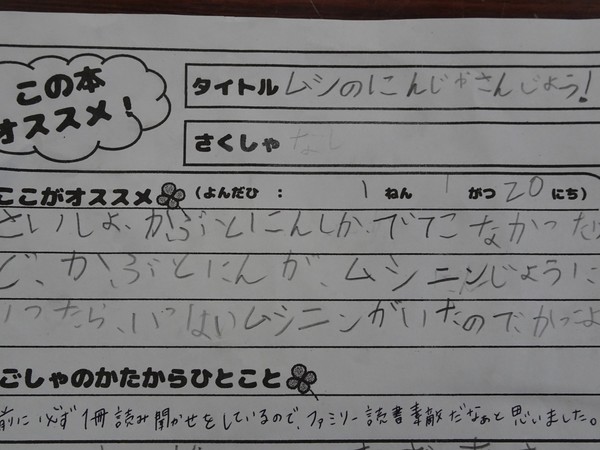 この本
オススメ!
タイトル ムシのにんじゃさんじょう!
さくしゃ なし
ここがオススメ (よんだひ : 1 ねん 1 がつ 20 にち)
さいしょ、かぶとにんしか、でてこなかった
ど、かぶとにんが、ムシニンじょうに
いったら、いっぱいムシニンがいたのでかっこよ
ごしゃのかたからひとこと
前に必ず1冊読み聞かせをしているので、ファミリー読書素敵だなぁと思いました。